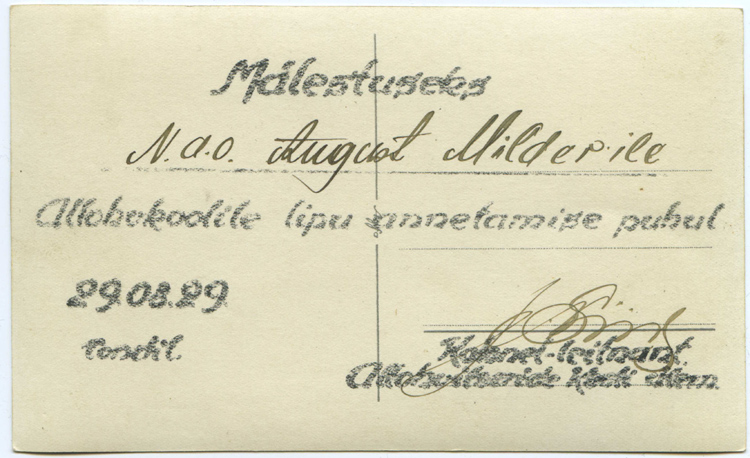 Mälestuseks
N.a.o. August Milderile
Allohvkoolile lipu annetamise puhul
29.08.29
Tondil.
Kolonel-leitnant
Allohvitseride kooli ülem.